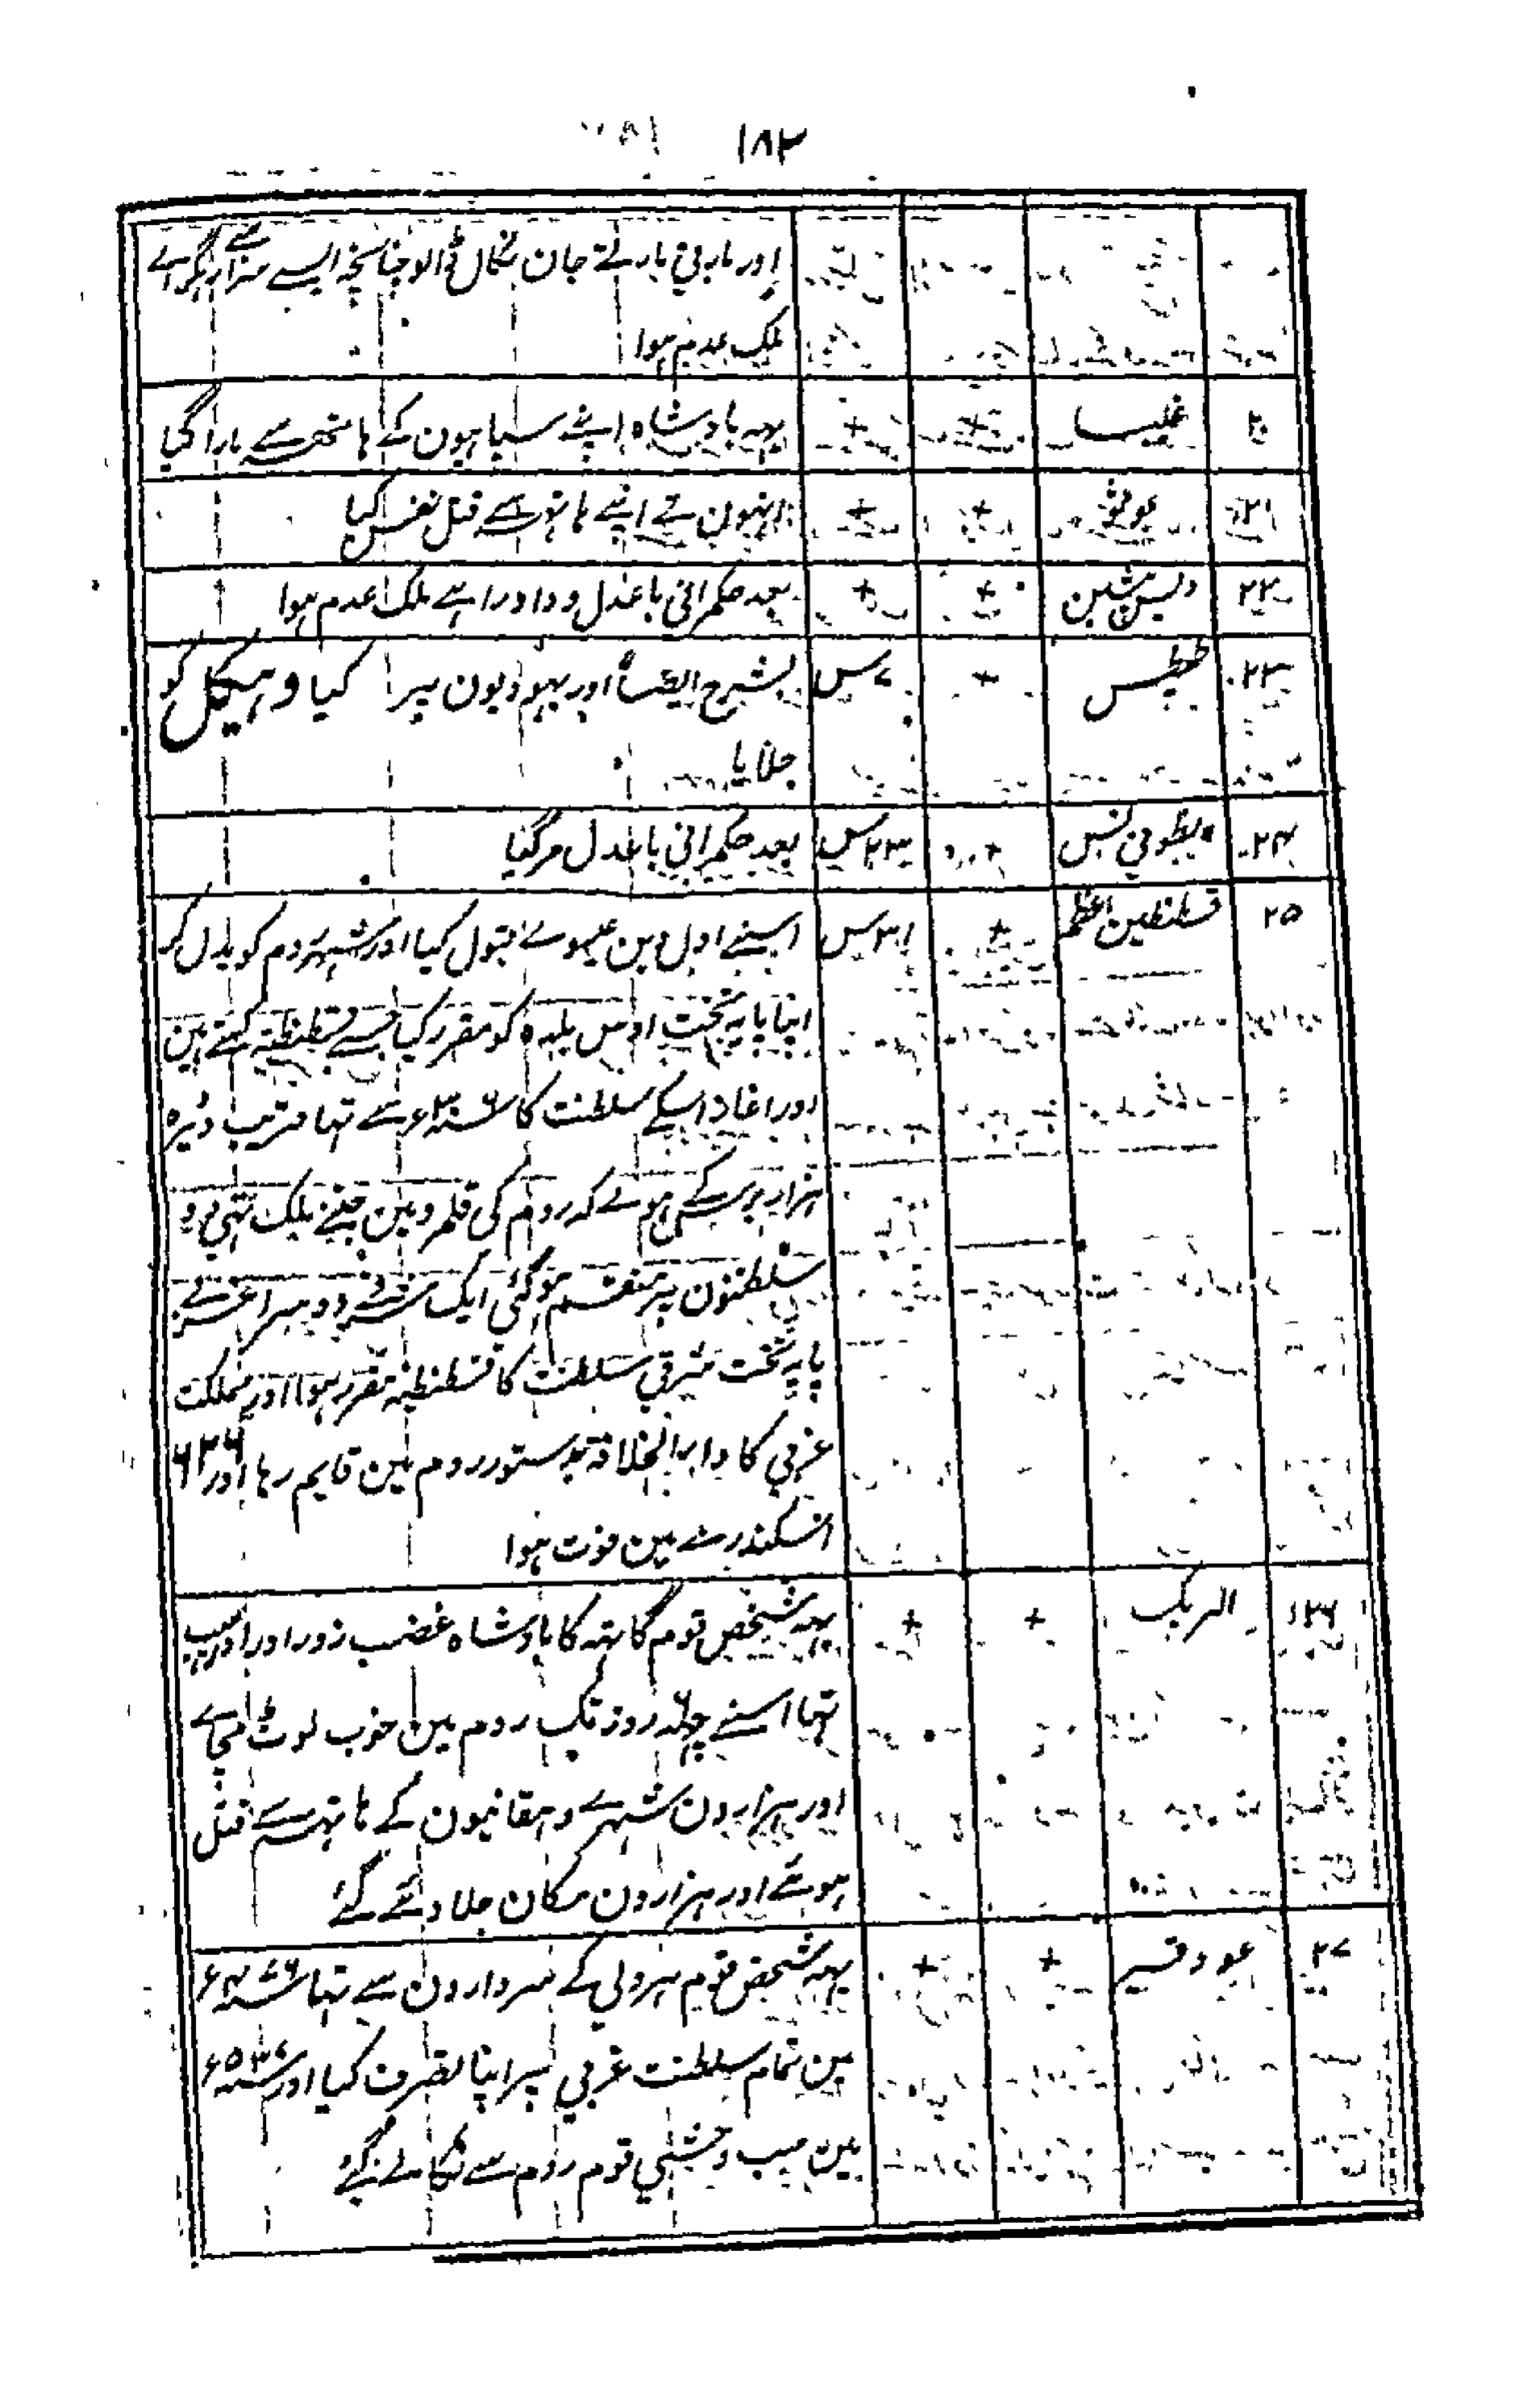 ۱۸۲
اور مارتی مارتے جان نکال ڈالو چنانچہ ایسے سزا سے راہگرائے
ملک عدم ہوا
۲۰ غلیسا + + یہہ بادشاہ اپنے سپاہیون کے ہاتھہ سے مارا گیا
۲۱ + + انہون نے اپنے ہاتہہ سے قتل نفس کیا
۲۲ دلیس شین + + بعد حکمرانی باعدل و داد راہے ملک عدم ہوا
۲۳ طیطس + ۷ س بشرح ایضاً اور یہودیون پر کیا و ہیکل کو
جلایا
۲۴ + ۲۳ س بعد حکمرانی باعدل مر گیا
۲۵ قسطنطین اعظم + ۳۱ س اسنے اول دین عیسوے قبول کیا اور شہر روم کو بدل کر
اپنا پایہ تخت اوس بلدہ کو مقرر کیا جسے قسطنطنیہ کہتے ہین
اور اغاز اسکے سلطنت کا سنہ ۳۰۶ء سے تہا قریب ڈیڑہ
ہزار برس کے ہوے کہ روم کی قلمرو مین جتنے ملک تہی دو
سلطنتون پر منقسم ہو گئی ایک شرقے دوسرا غربے
پایہ تخت مشرقی سلطنت کا قسطنطنیہ مقرر ہوا اور مملکت
غربی کا دار الخلافۃ بدستور روم مین قایم رہا اور
اسکندرے مین فوت ہوا
۲۶ الریک + + یہہ شخص قوم گاتہہ کا بادشاہ غضب زور اور
تہا اسنے چہہ روز تک روم مین خوب لوٹ مچاے
اور ہزارون شہرے دہقانیون کے ہاتہہ سے قتل
ہوئے اور ہزارون مکان جلا دئے گئے
۲۷ عود و قسر + + یہہ شخص قوم ہرولی کے سردارون سے تہا سنہ ۴۷۶ء
مین تمام سلطنت غربی پر اپنا تصرف کیا اور سنہ ۵۳۷ء
مین سب وحشی قوم روم سے نکالے گئے